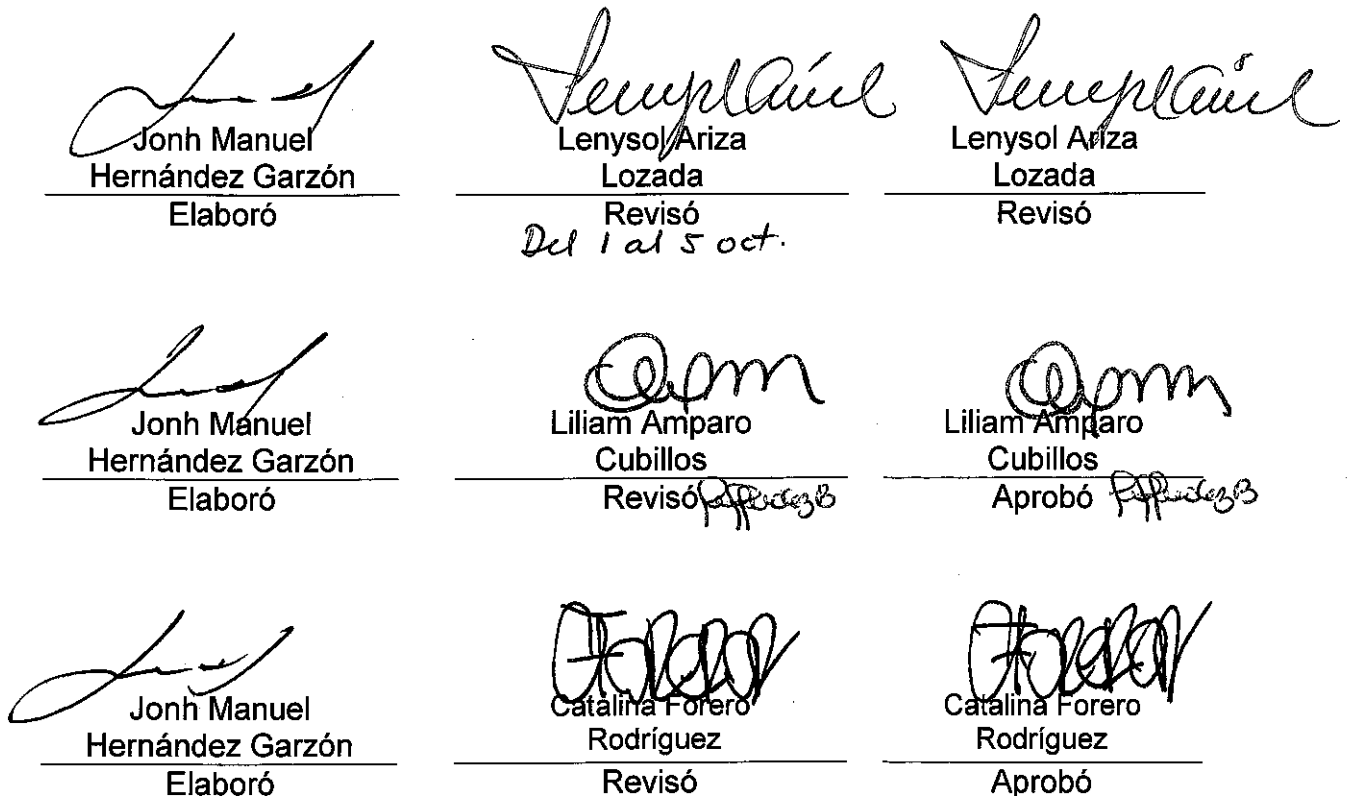 Jonh Manuel
Hernández Garzón
Elaboró
Lenysol Ariza
Lozada
Revisó
Del 1 al 5 oct.
Lenysol Ariza
Lozada
Revisó
Jonh Manuel
Hernández Garzón
Elaboró
Liliam Amparo
Cubillos
Revisó
Liliam Amparo
Cubillos
Aprobó
Jonh Manuel
Hernández Garzón
Elaboró
Catalina Forero
Rodríguez
Revisó
Catalina Forero
Rodríguez
Aprobó